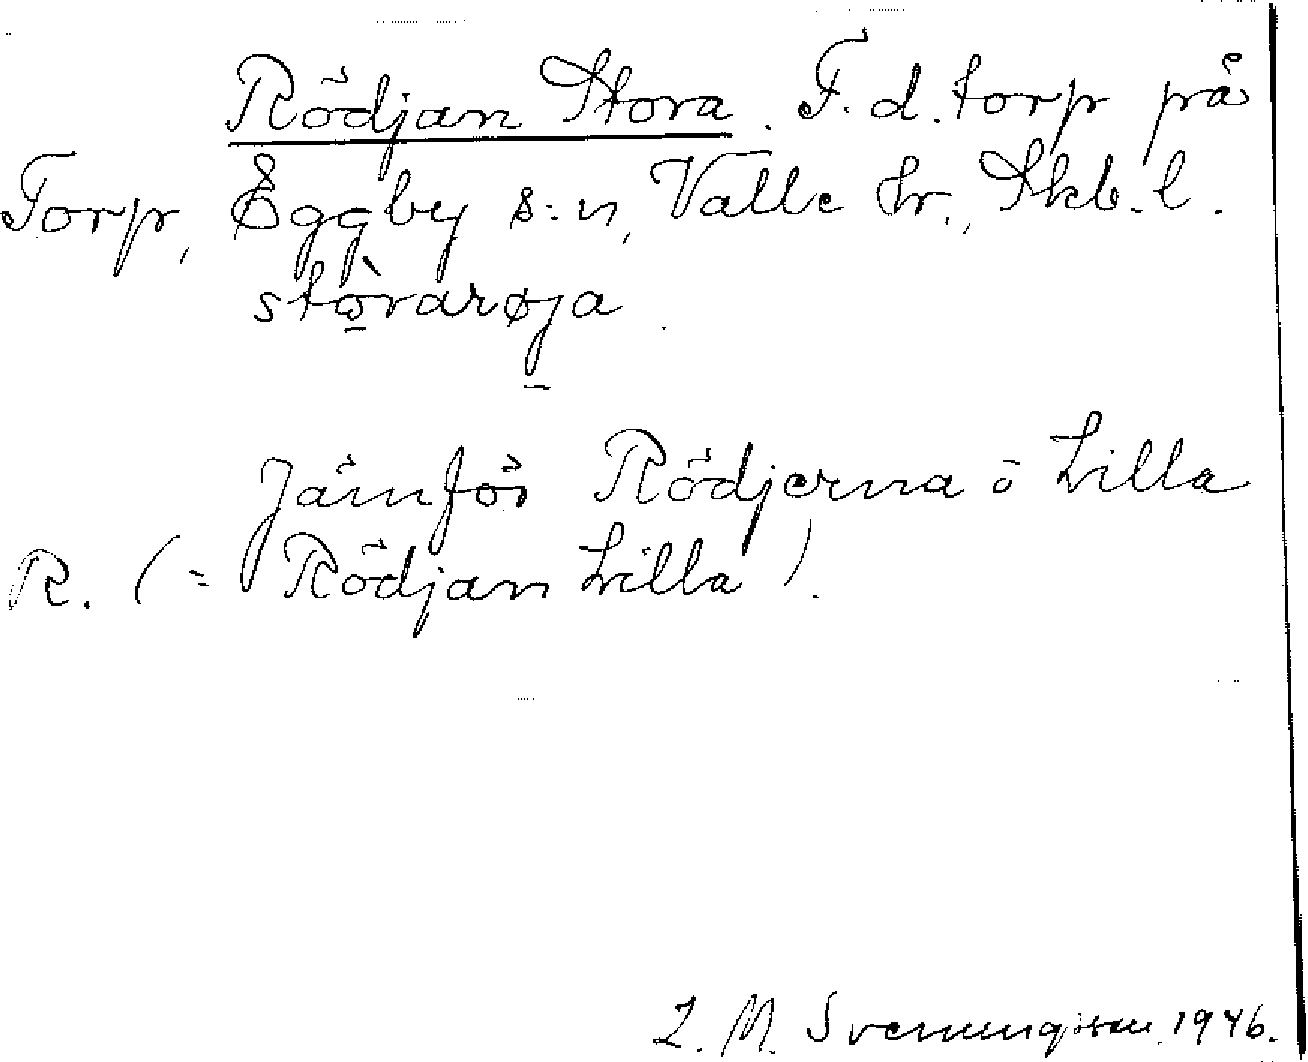 Rödjan Stora. F. d. torp på
Torp, Eggby s:n, Valle hr., Skb. l.
stòrarøja.
Jämför Rödjerna o Lilla
R. (= Rödjan Lilla).
L. M. Svenungsson 1946.